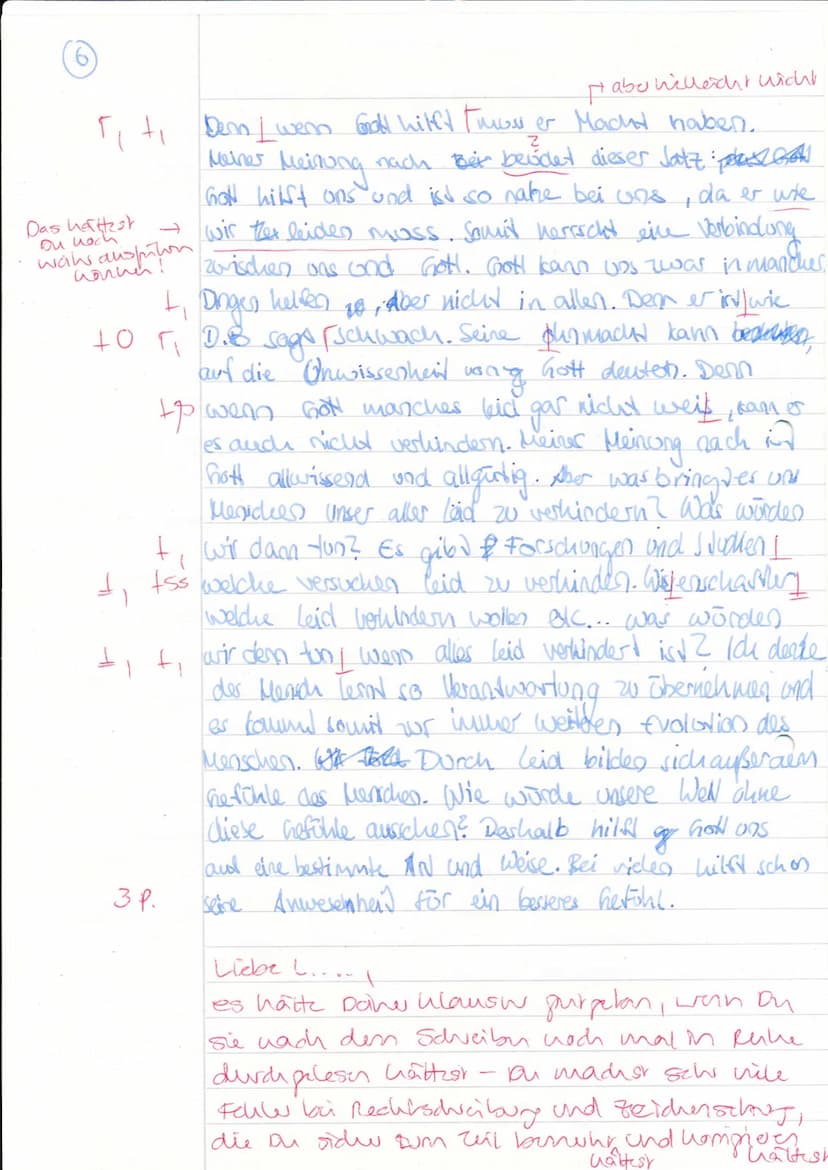 6
aber vielleicht nicht
Γ, t,
Denn wenn Gott hilft muss er Macht haben.
?
Meiner Meinung nach bedeudet dieser Satz:
Gott hilft uns und ist so nahe bei uns, da er wie
Das hättest
Du noch
näher ausführen
können!
wir leiden muss. Somit herrscht eine Verbindung
zwischen uns und Gott. Gott kann uns zwar in manchen
t,
Dingen helfen, aber nicht in allen. Denn er ist wie
to Γ,
D.B sagt schwach. Seine Ohnmacht kann
auf die Unwissenheit von Gott deuten. Denn
tß
wenn Gott manches Leid gar nicht weiß, kann er
es auch nicht verhindern. Meiner Meinung nach ist
Gott allwissend und allgütig. Aber was bringt es uns
Menschen unser aller Leid zu verhindern? Was würden
t,
wir dann tun? Es gibt Forschungen und Studien
t, tss
welche versuchen Leid zu verhinden. Wissenschaftler
welche Leid verhindern wollen etc... was würden
t, t,
wir denn tun wenn alles Leid verhindert ist? Ich denke
der Mensch lernt so Verantwortung zu übernehmen und
es kommt somit zur immer weitren Evolution des
Menschen. Durch Leid bilden sich außerdem
Gefühle des Menschen. Wie würde unsere Welt ohne
diese Gefühle aussehen? Deshalb hilft Gott uns
auf eine bestimmte Art und Weise. Bei vielen hilft schon
3 P.
seine Anwesenheit für ein besseres Gefühl.
Liebe L.....,
es hätte Deiner Klausur gut getan, wenn Du
sie nach dem Schreiben noch mal in Ruhe
durchgelesen hättest – Du machst sehr viele
Fehler bei Rechtschreibung und Zeichensetzung,
die Du sicher zum Teil bemerkt und korrigieren
hättest hättest